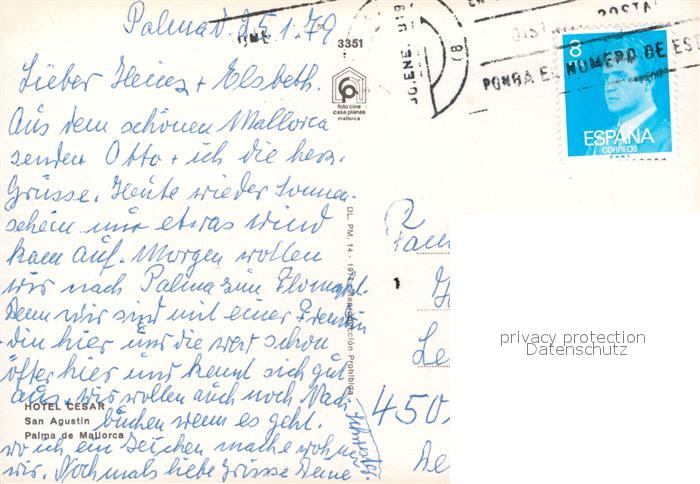 Palma d. 25.1.79
Lieber Heinz + Elsbeth.
Aus dem schönen Mallorca
senden Otto + ich die herz.
Grüsse. Heute wieder Sonnen-
schein nur etwas wind
kam auf. Morgen wollen
wir nach Palma zum Flohmarkt.
Denn wir sind mit einer Freun-
din hier und die war schon
öfter hier und kennt sich gut
aus. wir wollen auch noch Nach
buchen wenn es geht.
wo ich ein Zeichen mache wohnen
wir. Nochmals liebe Grüsse Deine
Schwester.
HOTEL CESAR
San Agustin
Palma de Mallorca
3351
foto cine
casa planas
mallorca
DL. PM. 14 - Reproducción Prohibida
POSTAL
PONGA EL NUMERO DE
8
ESPAÑA
CORREOS
Fam
450
privacy protection
Datenschutz